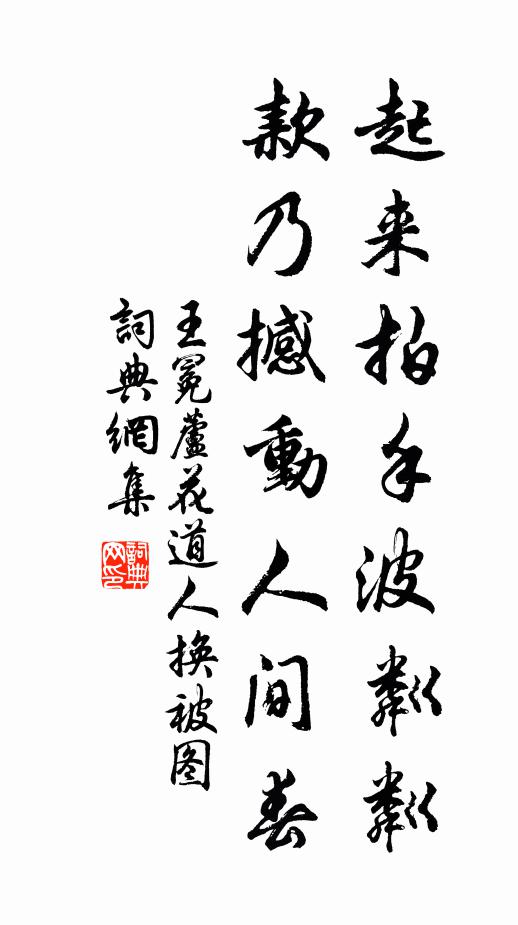 起来拍手波粼粼
款乃撼動人间春
王冕蘆花道人换被图
詞典網集
詞典网印